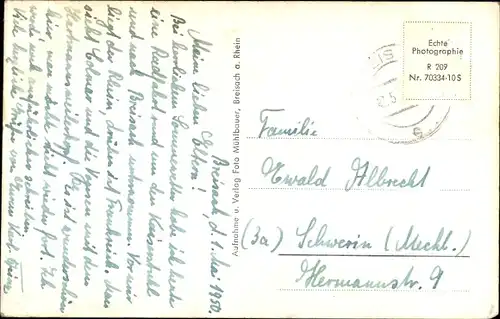 Breisach, d. 1. Mai 1950.
Meine lieben Eltern!
Bei herrlichem Sommerwetter habe ich heute
eine Radfahrt rund um den Kaiserstuhl
und nach Breisach unternommen. Vor mir
liegt der Rhein, drüben ist Frankreich. Man
sieht Colmar und die Vogesen mit dem
Hartmannsweilerkopf. Es ist wunderschön
hier, man möchte nicht wieder fort. Ich
werde noch ausführlicher schreiben.
Viele herzliche Grüße von Eurem
Aufnahme u. Verlag Foto Mühlbauer, Breisach a. Rhein
Echte
Photographie
R 209
Nr. 70334-10 S
Familie
Ewald Albrecht
(3a) Schwerin (Meckl.)
Hermannstr. 9